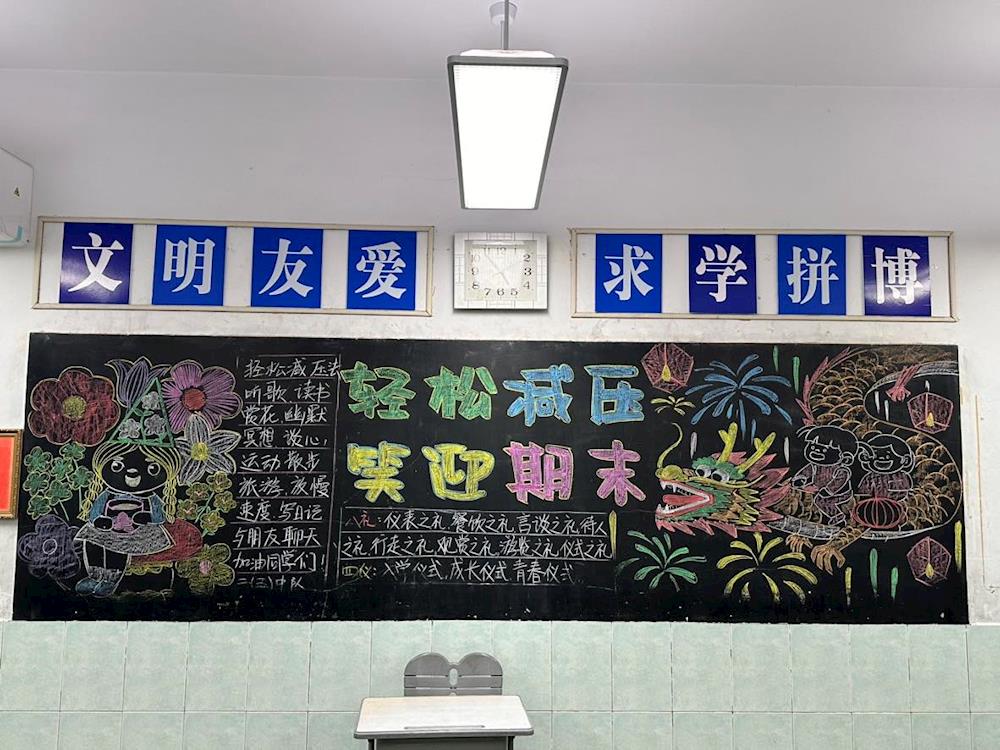 文明友爱
求学拼博
轻松减压
笑迎期末
轻松减压法
听歌 读书
赏花,幽默
冥想 谈心,
运动 散步
旅游,放慢
速度 写日记
与朋友聊天
加油同学们!
二(五)中队
八礼:仪表之礼 餐饮之礼 言谈之礼 待人
之礼,行走之礼,观赏之礼,游览之礼,仪式之礼
四仪:入学仪式,成长仪式 青春仪式